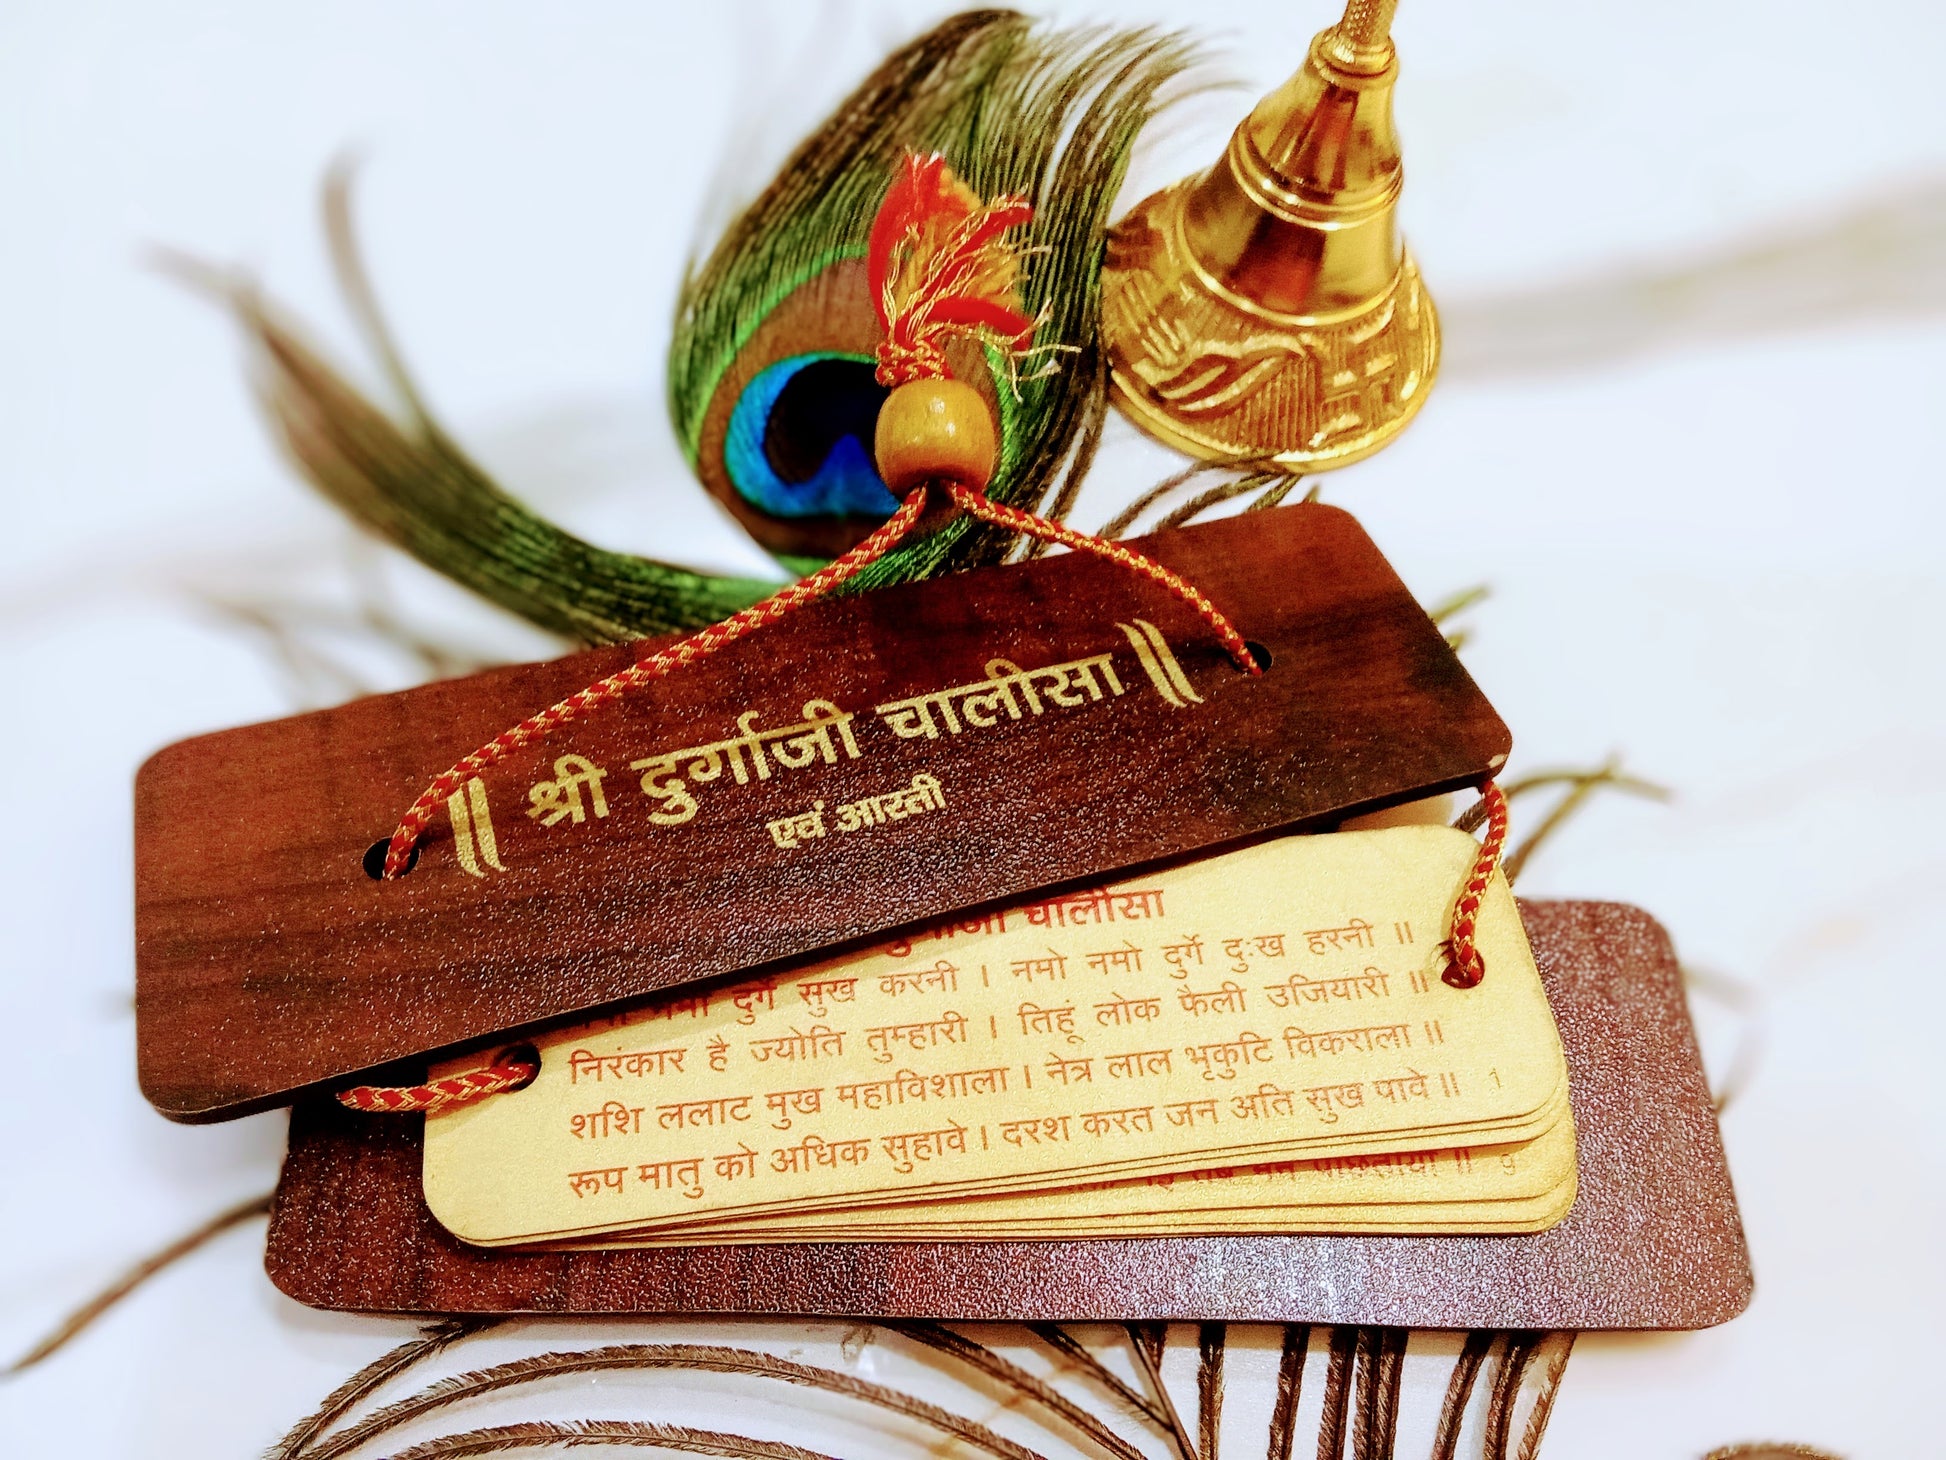 ॥ श्री दुर्गाजी चालीसा ॥
एवं आरती
चालीसा
दुर्गे सुख करनी । नमो नमो दुर्गे दुःख हरनी ॥
निरंकार है ज्योति तुम्हारी । तिहूं लोक फैली उजियारी ॥
शशि ललाट मुख महाविशाला । नेत्र लाल भृकुटि विकराला ॥
रूप मातु को अधिक सुहावे । दरश करत जन अति सुख पावे ॥ 1
॥ 9